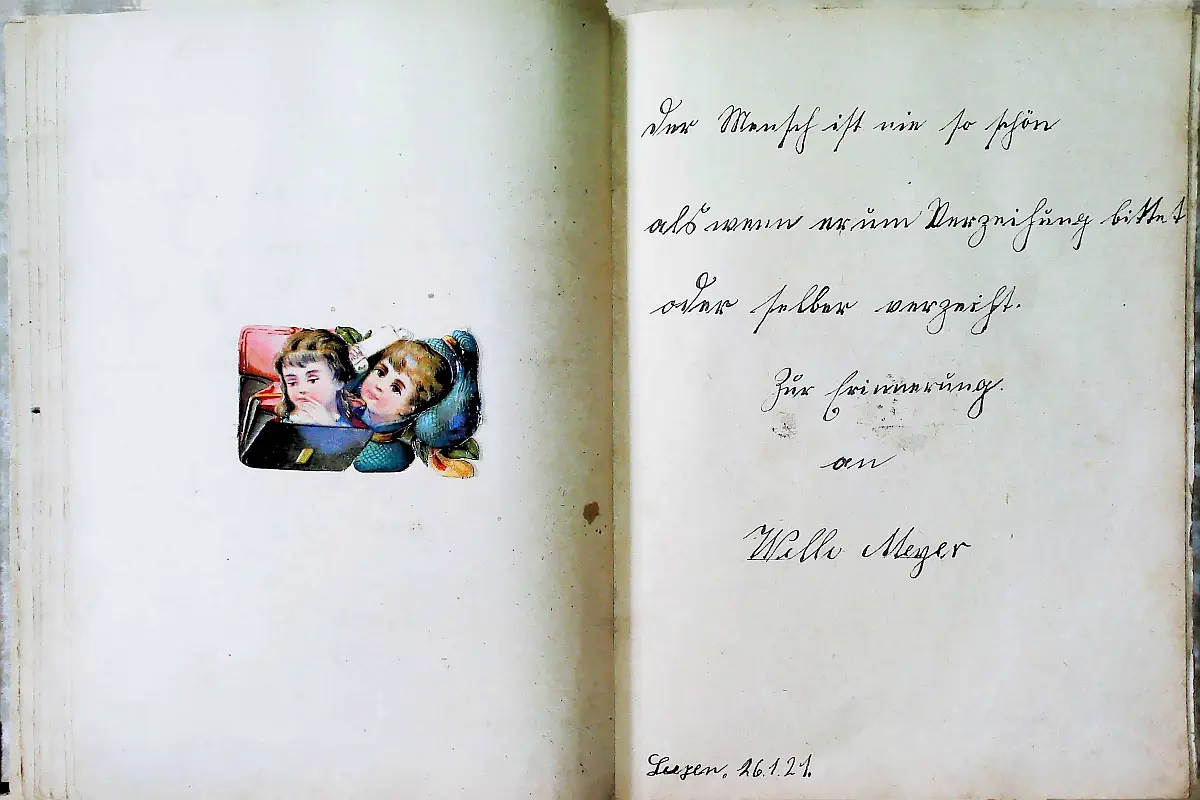 Der Mensch ist nie so schön
als wenn er um Verzeihung bittet
oder selber verzeiht.
Zur Erinnerung.
an
Willi Meyer
26.1.21.